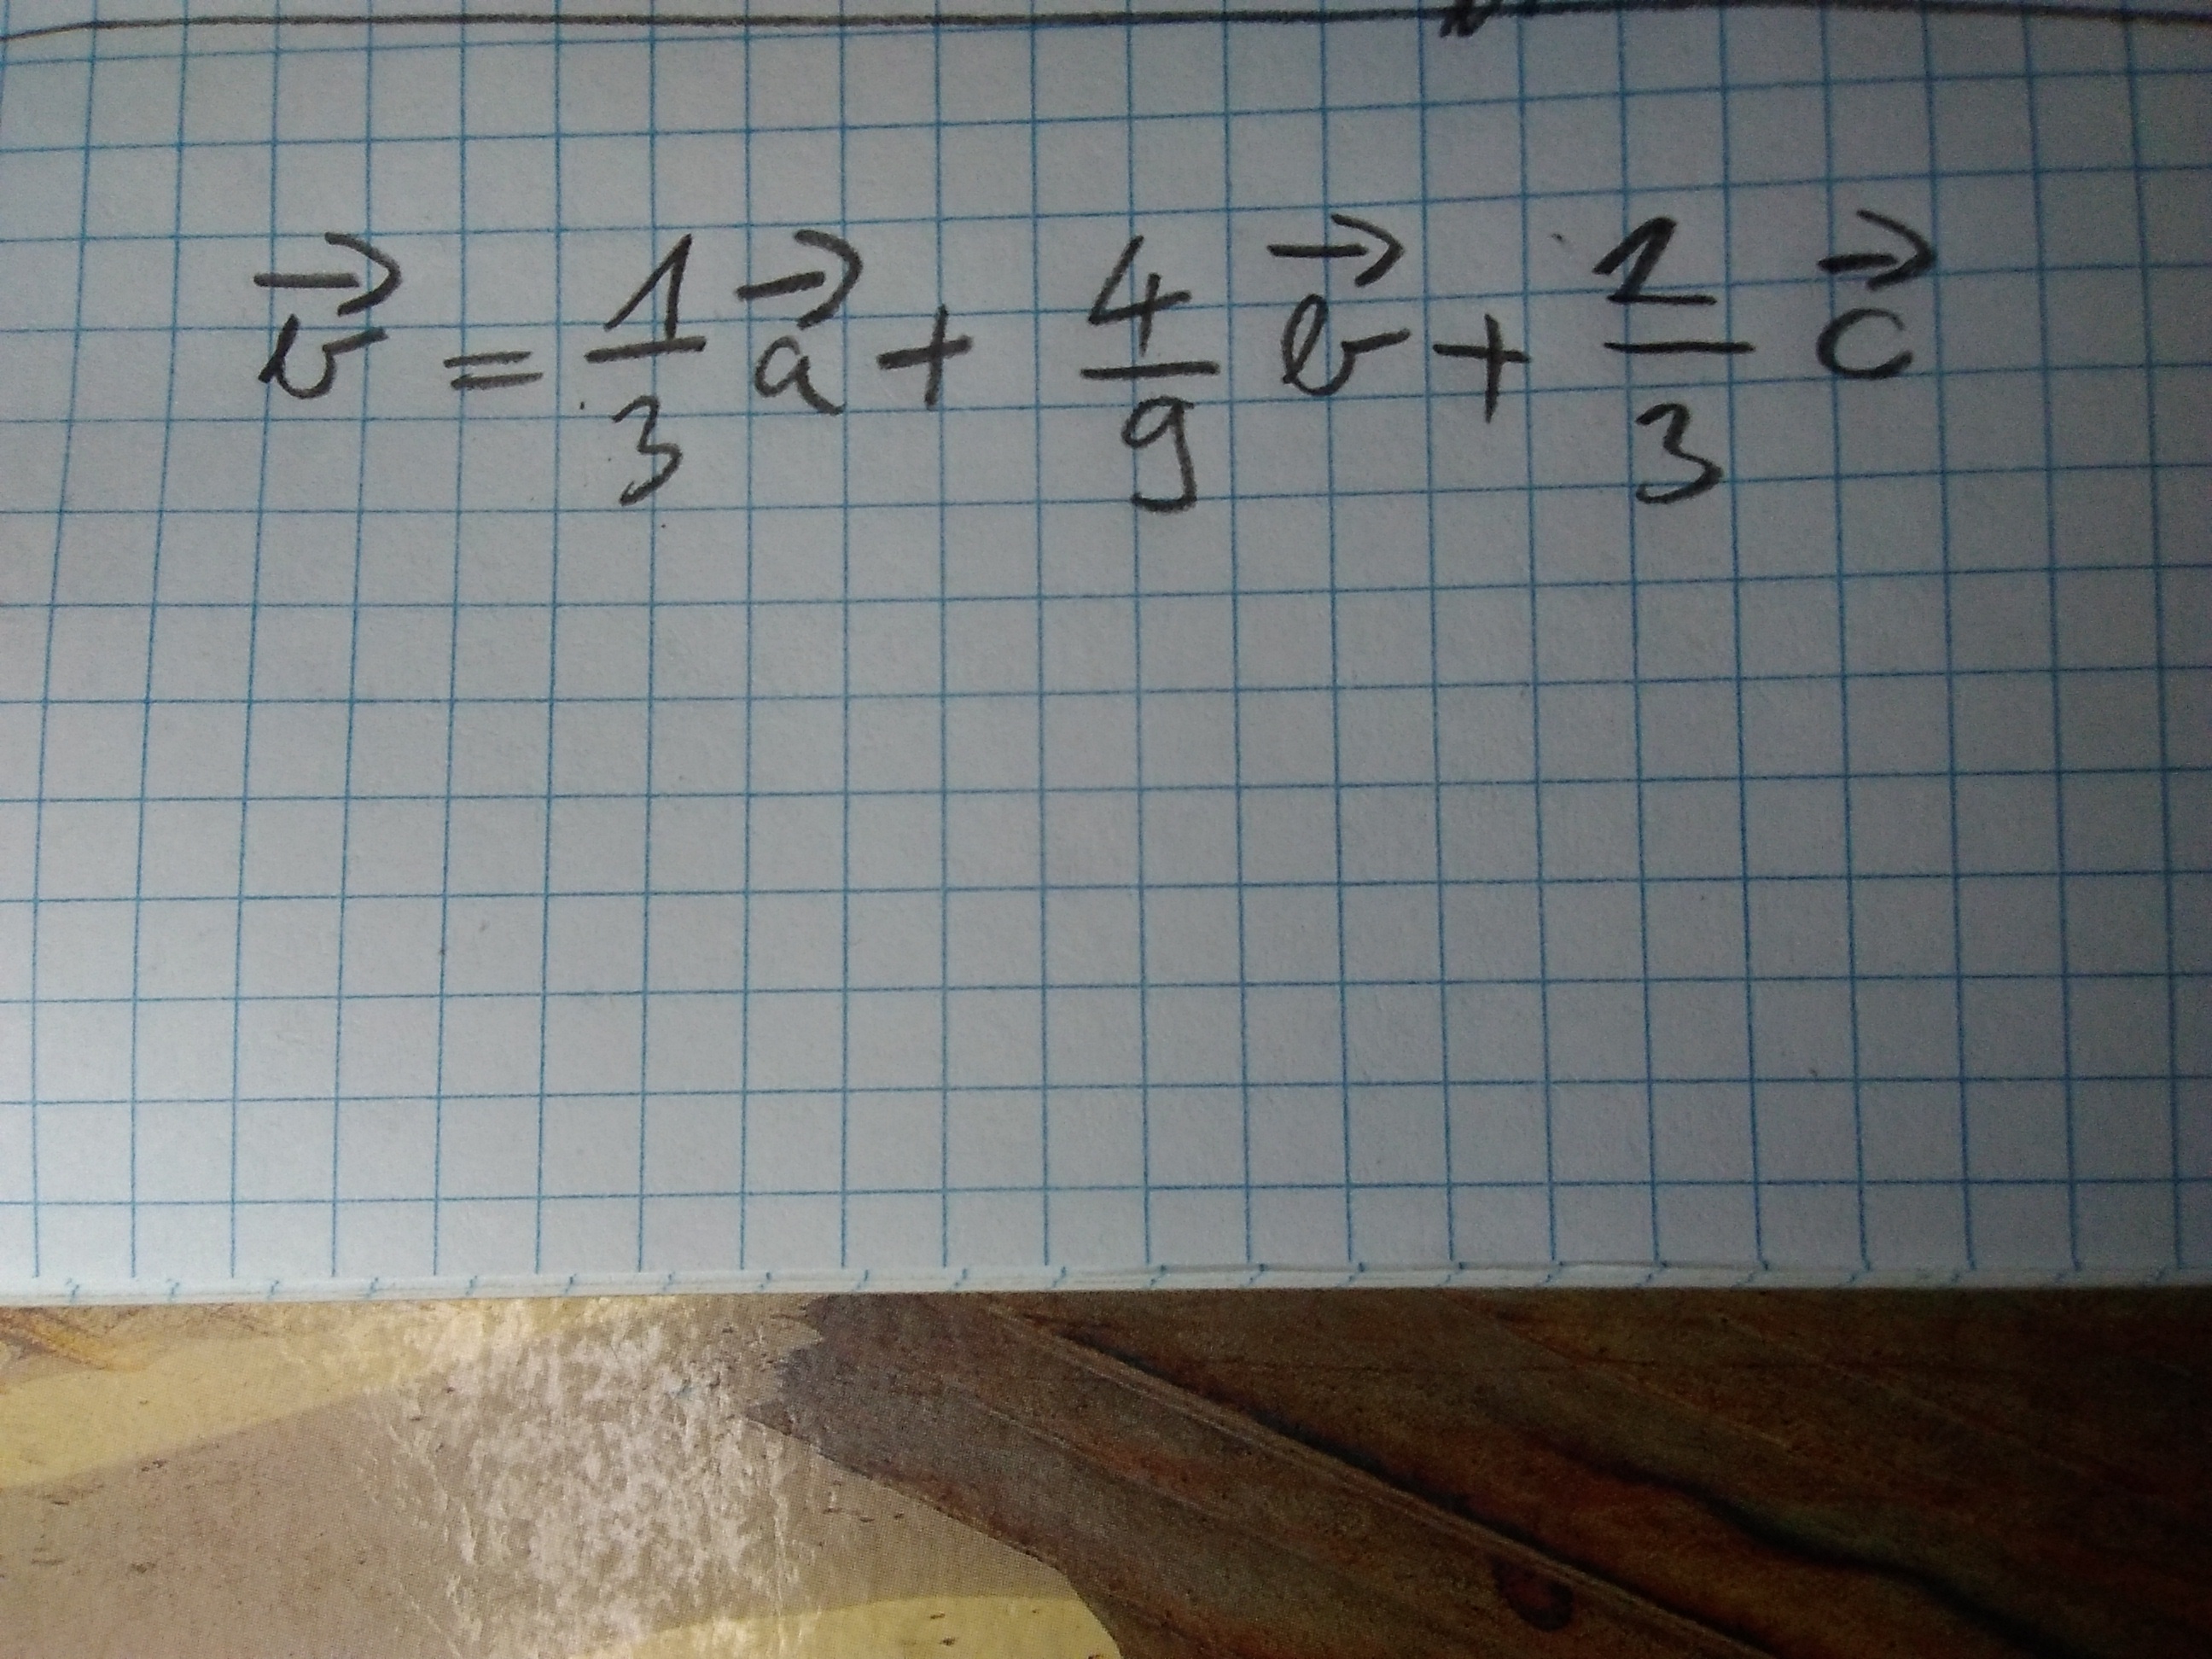 v⃗ = 1/3 a⃗ + 4/9 b⃗ + 2/3 c⃗